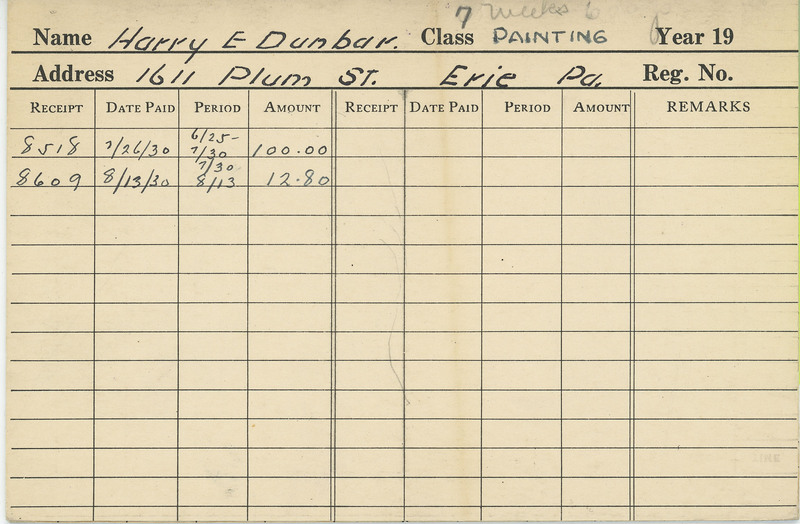 7 weeks 6
Name Harry E Dunbar. Class PAINTING Year 19
Address 1611 Plum St. Erie Pa. Reg. No.
RECEIPT DATE PAID PERIOD AMOUNT RECEIPT DATE PAID PERIOD AMOUNT REMARKS
6/25-
8518 7/26/30 7/30 100.00
7/30
8609 8/13/30 8/13 12.80